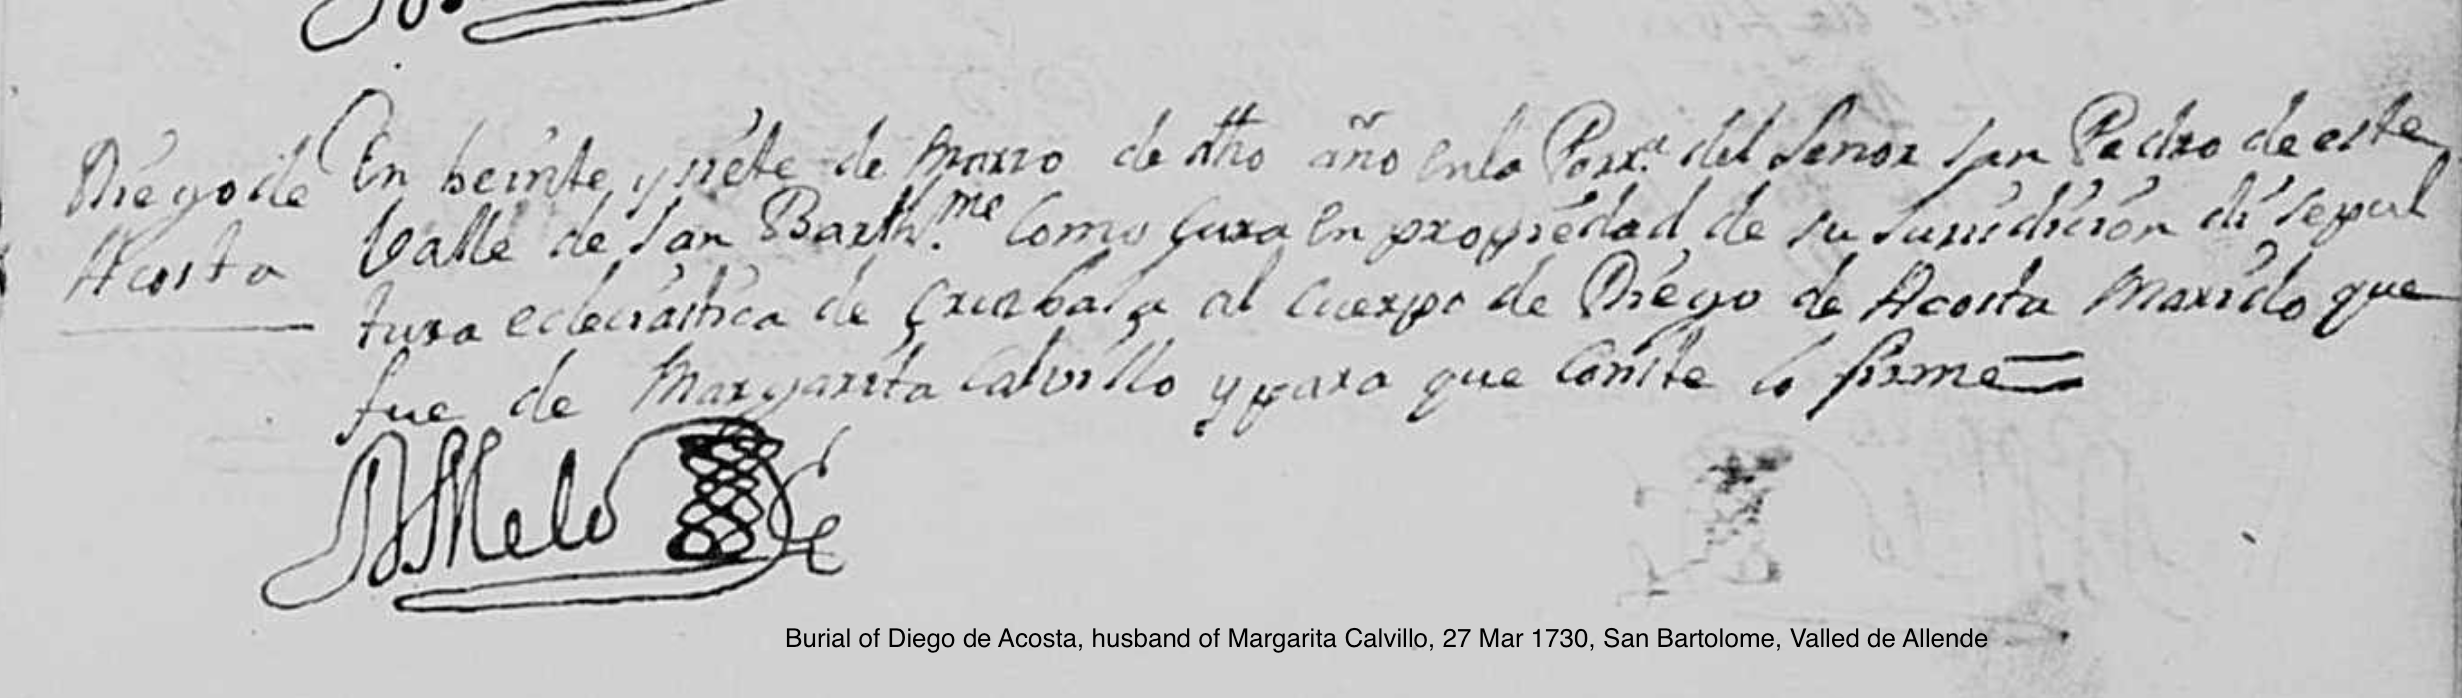 Diego de
Acosta
En beinte y siete de Marzo de dho año en la Parr.ª del Señor San Pedro de este
Valle de San Barth.me como Cura en propiedad de su Jurisdicion di sepul
tura eclesiastica de cruz baja al cuerpo de Diego de Acosta Marido que
fue de Margarita Calvillo y para que conste lo firme
Melo
Burial of Diego de Acosta, husband of Margarita Calvillo, 27 Mar 1730, San Bartolome, Valled de Allende